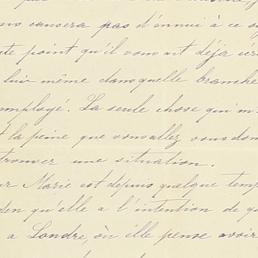 causera pas d'ennui à ce su
te point qu'il vous ait déja écri
lui même dans quelle branche
mployé. La seule chose qui m'
t la peine que vous allez vous don
trouver une situation.
r Marie est depuis quelque temp
den qu'elle a l'intention de qu
a Londres, où elle pense avoir